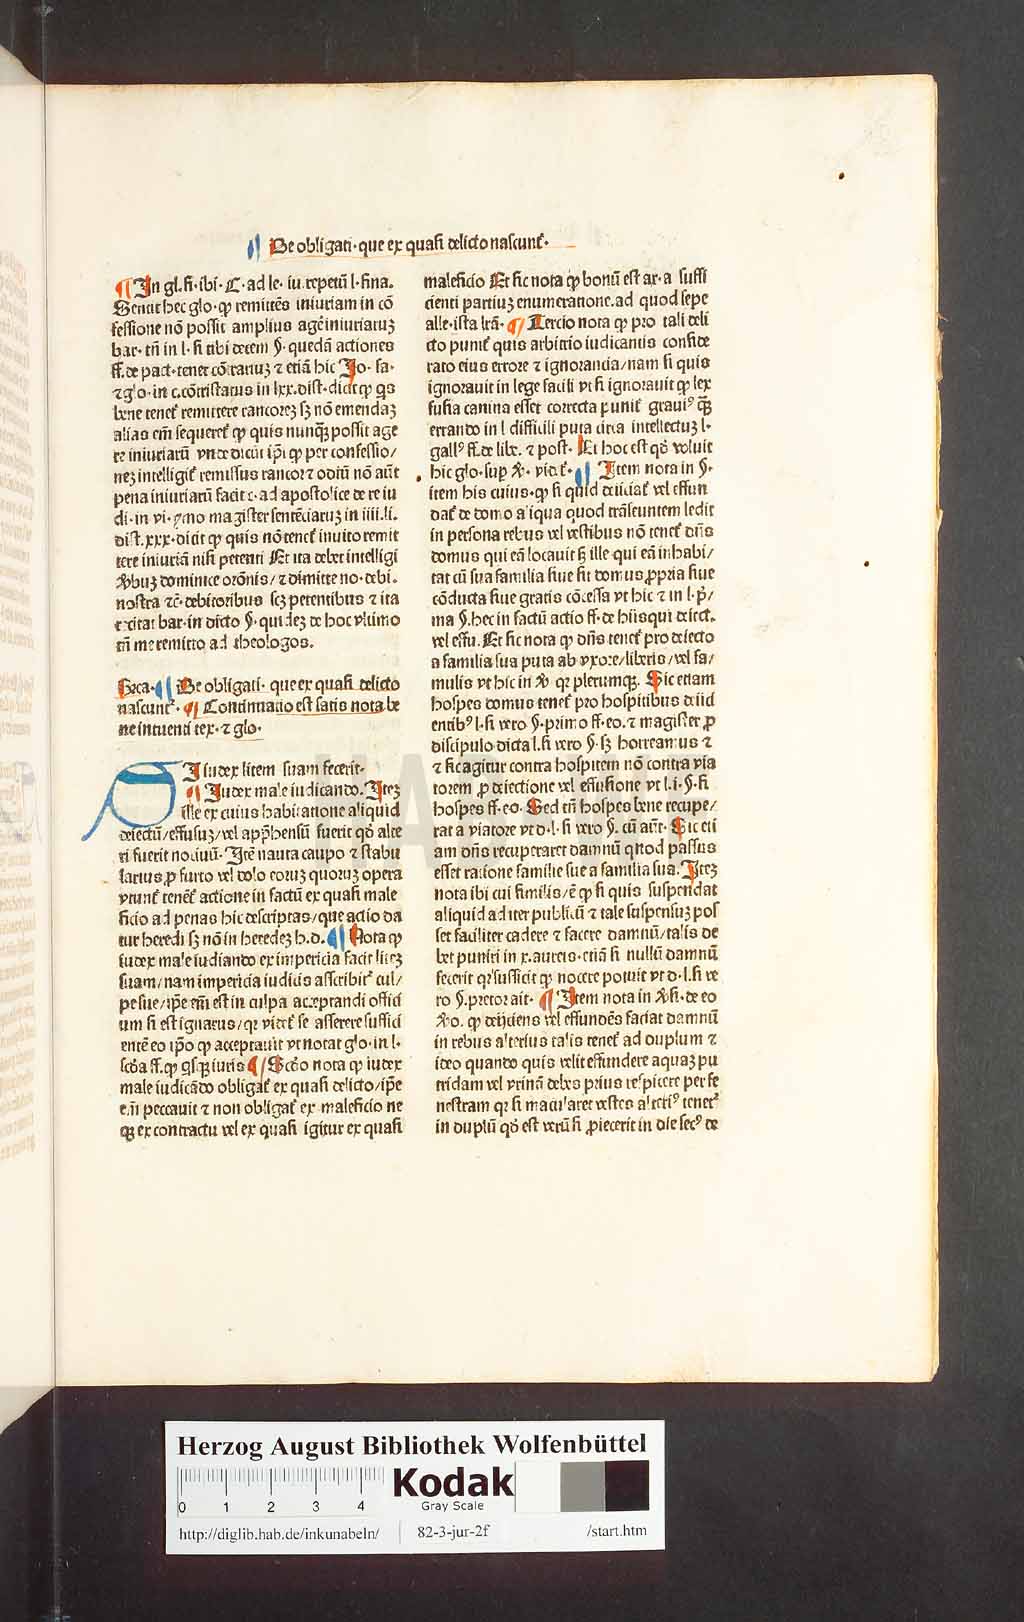 ¶ De obligati· que ex quasi delicto nascunt᷑·
¶ In gl. fi· ibi· C· ad le· iu. repetū l· fina.
Sentit hec glo· ꝙ remittēs iniuriam in cō
fessione nō possit amplius agē iniuriaruꝫ
bar· tn̄ in l· si tibi decem §· quedā actiones
ff. de pact· tenet cōtrariuꝫ ⁊ etiā hic Jo· fa·
⁊ glo· in c. cōtristatus in lxx. dist· dicit ꝙ qs
bene tenet᷑ remittere rancoreꝫ sꝫ nō emendaꝫ
alias em̄ sequeret᷑ ꝙ quis nunqꝫ possit age
re iniuriarū vnde dicūt ip̄i ꝙ per confessio/
neꝫ intelligit᷑ remissus rancor ⁊ odiū nō aūt
pena iniuriarū facit c· ad apostolice de re iu
di· in vi· ymo magister sentēciaruꝫ in iiii. li.
dist. xxx· dicit ꝙ quis nō tenet᷑ inuito remit
tere iniuriā nisi petenti Et ita debet intelligi
v̄buꝫ dominice orōnis/ ⁊ dimitte no· debi·
nostra ⁊c̄· debitoribus scꝫ petentibus ⁊ ita
recitat bar· in dicto §· quideꝫ de hoc vltimo
tn̄ me remitto ad theologos.
¶ De obligati· que ex quasi delicto
nascunt᷑· ¶ Continuatio est satis nota be
ne intuenti tex· ⁊ glo·
SI iudex litem suam fecerit·
¶ Iudex male iudicando. Iteꝫ
ille ex cuius habitatione aliquid
deiectū/effusuꝫ/vel app̄hensū fuerit qd̄ alte
ri fuerit nociuū· Itē nauta caupo ⁊ stabu
larius ꝓ furto vel dolo eoruꝫ quoruꝫ opera
vtunt᷑ tenet᷑ actione in factū ex quasi male
ficio ad penas hic descriptas/ que actio da
tur heredi sꝫ nō in heredeꝫ h. d. ¶ Nota ꝙ
iudex male iudiando ex impericia facit liteꝫ
suam/ nam impericia iudicis ascribit᷑ cul/
pe sue/ ip̄e em̄ est in culpa acceptandi offici
um si est ignarus/ qr videt᷑ se asserere suffici
entē eo ip̄o ꝙ acceptauit vt notat glo· in l·
scd̄a ff. ꝙ qsqꝫ iuris ¶ Scd̄o nota ꝙ iudex
male iudicādo obligat᷑ ex quasi delicto/ ip̄e
em̄ peccauit ⁊ non obligat᷑ ex maleficio ne
qꝫ ex contractu vel ex quasi igitur ex quasi
maleficio Et sic nota ꝙ bonū est ar· a suffi
cienti partiuꝫ enumeratione. ad quod sepe
alle· ista lrā· ¶ Tercio nota ꝙ pro tali deli
cto punit᷑ quis arbitrio iudicantis conside
rato eius errore ⁊ ignorancia/ nam si quis
ignorauit in lege facili vt si ignorauit ꝙ lex
fusia canina esset correcta punit᷑ graui⁹ qꝫ
errando in l difficili puta circa intellectuꝫ l·
gall⁹ ff. de libe. ⁊ post· Et hoc est qd̄ voluit
hic glo· sup̄ v̄· vid᷑· ¶ Item nota in §·
item his cuius· ꝙ si quid deiiciat᷑ vel effun
dat᷑ de domo aliqua quod trāseuntem ledit
in persona rebus vel vestibus nō tenet᷑ dn̄s
domus qui eā locauit sꝫ ille qui eā inhabi/
tat cū sua familia siue sit domus ꝓpria siue
cōducta siue gratis cōcessa vt hic ⁊ in l· p̄/
ma §. hec in factū actio ff· de hiis qui deiect.
vel effu. Et sic nota ꝙ dn̄s tenet᷑ pro deiecto
a familia sua puta ab vxore/ liberis/ vel fa/
mulis vt hic in v̄ qr plerumqꝫ. Sic etiam
hospes domus tenet᷑ pro hospitibus deiid
entib⁹ l· si vero §· primo ff. eo. ⁊ magister ꝓ
discipulo dicta l. si vero §· sꝫ horreamus ⁊
⁊ sic agitur contra hospitem nō contra via
torem ꝓ deiectione vel effusione vt l. i· §· si
hospes ff. eo. Sed tn̄ hospes bene recupe/
rat a viatore vt d· l· si vero §. cū aūt· Sic eti
am dn̄s recuperaret damnū quod passus
esset ratione familie sue a familia sua. Iteꝫ
nota ibi cui similis/ ē ꝙ si quis suspendat
aliquid ad iter publicū ⁊ tale suspensuꝫ pos
set faciliter cadere ⁊ facere damnū/ talis de
bet puniri in x. aureis· etiā si nullū damnū
fecerit qr sufficit ꝙ nocere potuit vt d· l. si ve
ro §. pretor ait· ¶ Item nota in v̄ si· de eo
v̄o. ꝙ deijciens vel effundēs faciat damnū
in rebus alterius talis tenet᷑ ad duplum ⁊
ideo quando quis velit effundere aquaꝫ pu
tridam vel vrinā debes prius respicere per fe
nestram qr si macularet vestes alteri⁹ tenet᷑
in duplū qd̄ est verū si ꝓiecerit in die sec⁹ de
Herzog August Bibliothek Wolfenbüttel
0 1 2 3 4
Kodak
Gray Scale
http://diglib.hab.de/inkunabeln/ 82-3-jur-2f /start.htm
HAB